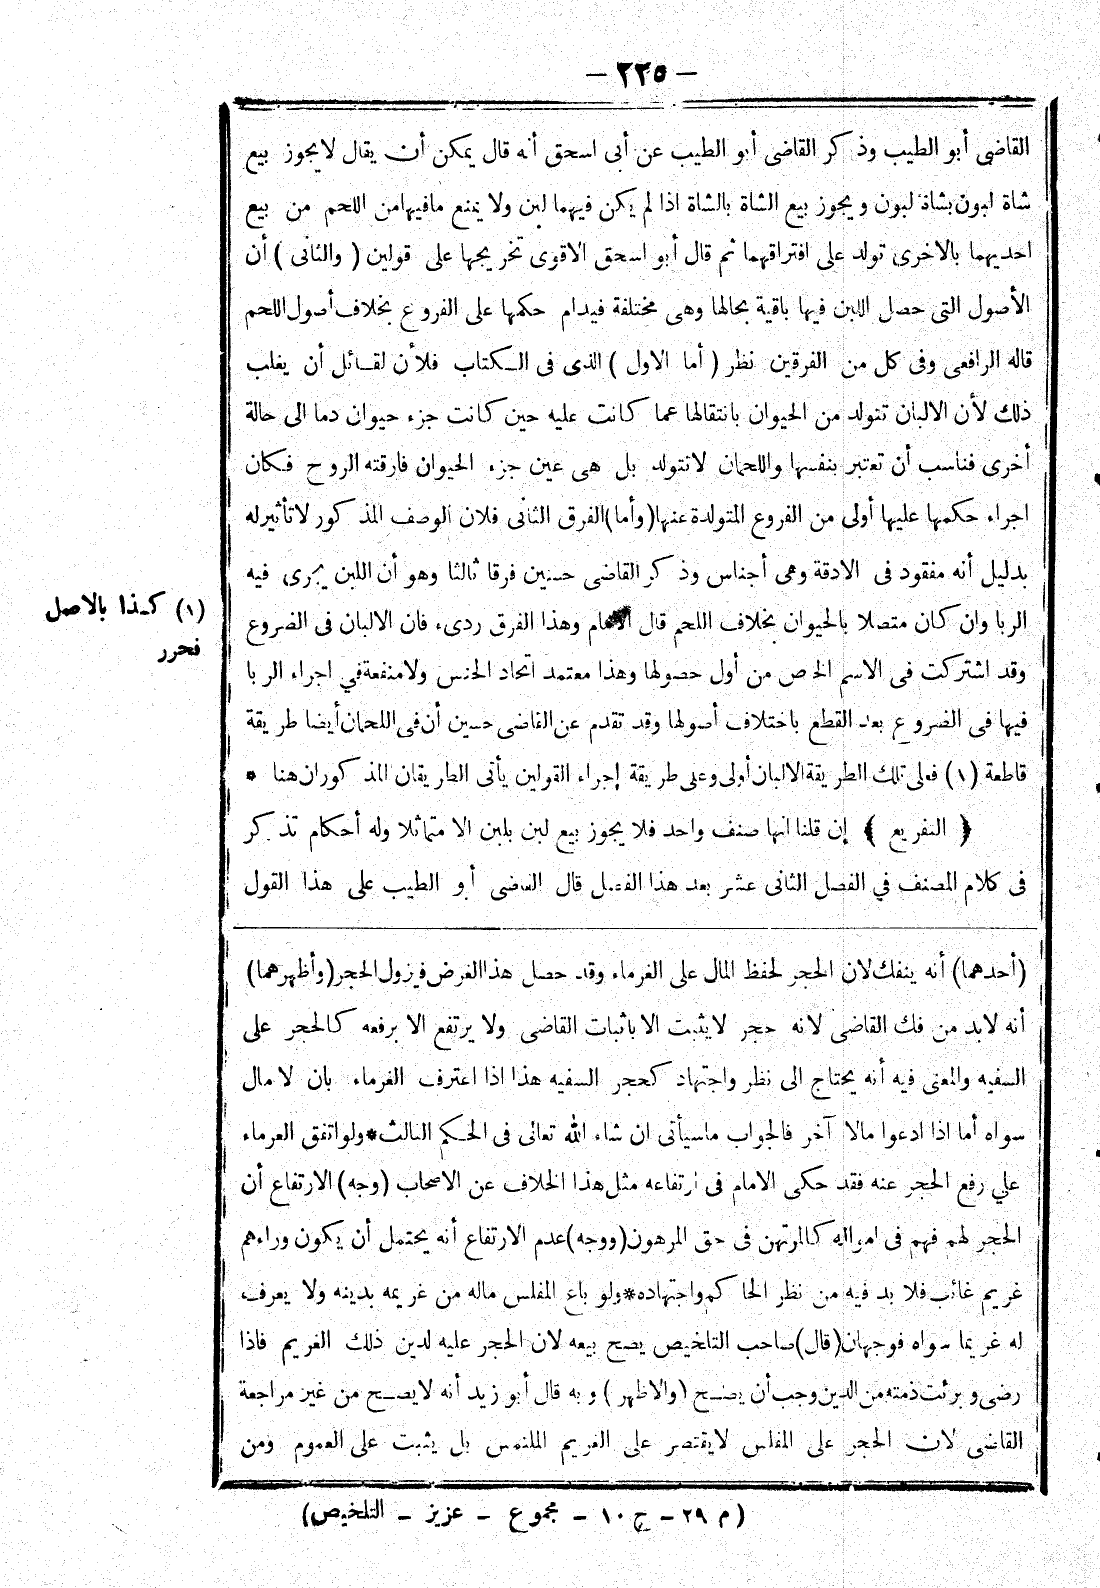 — ٢٢٥ —
القاضى أبو الطيب وذكر القاضى أبو الطيب عن أبى اسحق أنه قال يمكن أن يقال لايجوز بيع
شاة لبون بشاة لبون ويجوز بيع الشاة بالشاة اذا لم يكن فيهما لبن ولا يمنع مافيهما من اللحم من بيع
احديهما بالاخرى تولد على افتراقهما ثم قال أبو اسحق الاقوى تخريجها على قولين (والثانى) أن
الأصول التى حصل اللبن فيها باقية بحالها وهى مختلفة فيدام حكمها على الفروع بخلاف أصول اللحم
قاله الرافعى وفى كل من الفرقين نظر (أما الاول) الذى فى الكتاب فلأن لقائل أن يغلب
ذلك لأن الالبان تتولد من الحيوان بانتقالها عما كانت عليه حين كانت جزء حيوان دما الى حالة
أخرى فناسب أن تعتبر بنفسها واللحمان لاتتولد بل هى عين جزء الحيوان فارقته الروح فكان
اجراء حكمها عليها أولى من الفروع المتولدة عنها (وأما) الفرق الثانى فلان الوصف المذكور لاتأثيرله
بدليل أنه مفقود فى الادقة وهى أجناس وذكر القاضى حسين فرقا ثالثا وهو أن اللبن يجرى فيه
الربا وان كان متصلا بالحيوان بخلاف اللحم قال الامام وهذا الفرق ردىء فان الالبان فى الضروع
وقد اشتركت فى الاسم الخاص من أول حصولها وهذا معتمد اتحاد الجنس ولامنفعة في اجراء الربا
فيها فى الضروع بعد القطع باختلاف أصولها وقد تقدم عن القاضى حسين أن فى اللحمان أيضا طريقة
قاطعة (١) فعلى تلك الطريقة الالبان أولى وعلى طريقة إجراء القولين يأتى الطريقان المذكوران هنا *
﴿ التفريع ﴾ إن قلنا انها صنف واحد فلا يجوز بيع لبن بلبن الا متماثلا وله أحكام تذكر
فى كلام المصنف في الفصل الثانى عشر بعد هذا الفصل قال القاضى أبو الطيب على هذا القول
(١) كذا بالاصل
فحرر
(أحدهما) أنه ينفك لان الحجر لحفظ المال على الغرماء وقد حصل هذا الغرض فيزول الحجر (وأظهرهما)
أنه لابد من فك القاضى لانه حجر لايثبت الا باثبات القاضى ولا يرتفع الا برفعه كالحجر على
السفيه والمعنى فيه أنه يحتاج الى نظر واجتهاد كحجر السفيه هذا اذا اعترف الغرماء بان لا مال
سواه أما اذا ادعوا مالا آخر فالجواب ماسيأتى ان شاء الله تعالى فى الحكم الثالث * ولو اتفق الغرماء
علي رفع الحجر عنه فقد حكى الامام فى ارتفاعه مثل هذا الخلاف عن الاصحاب (وجه) الارتفاع أن
الحجر لهم فهم فى امواله كالمرتهن فى حق المرهون (ووجه) عدم الارتفاع أنه يحتمل أن يكون وراءهم
غريم غائب فلا بد فيه من نظر الحاكم واجتهاده * ولو باع المفلس ماله من غريمه بدينه ولا يعرف
له غريما سواه فوجهان (قال) صاحب التلخيص يصح بيعه لان الحجر عليه لدين ذلك الغريم فاذا
رضى وبرئت ذمته من الدين وجب أن يصح (والاظهر) وبه قال أبو زيد أنه لايصح من غير مراجعة
القاضى لان الحجر على المفلس لايقتصر على الغريم الملتمس بل يثبت على العموم ومن
(م ٢٩ – ج ١٠ – مجموع – عزيز – التلخيص)